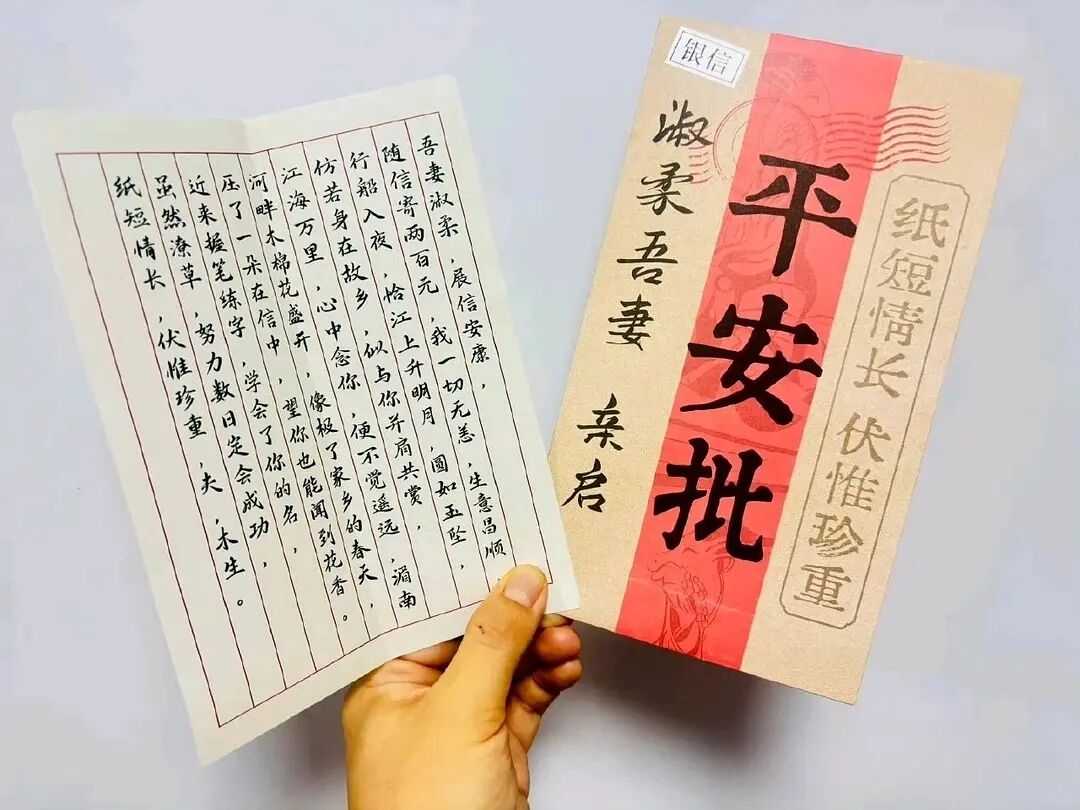 吾妻淑柔,展信安康,
随信寄两百元,我一切无恙,生意昌顺
行船入夜,恰江上升明月,圆如玉坠,
仿若身在故乡,似与你并肩共赏,
江海万里,心中念你,便不觉遥远,湄南
河畔木棉花盛开,像极了家乡的春天,
压了一朵在信中,望你也能闻到花香。
近来握笔练字,学会了你的名,
虽然潦草,努力数日定会成功,
纸短情长,伏惟珍重,夫,木生。
银信
纸短情长 伏惟珍重
平安批
淑柔吾妻 亲启